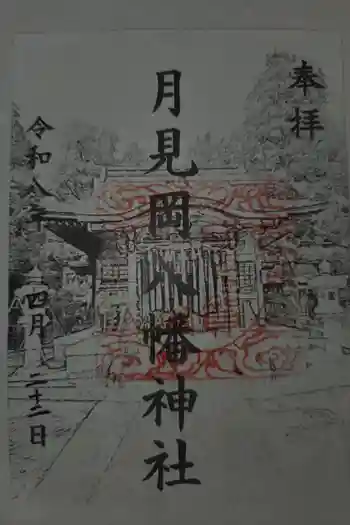 奉拝
月見岡八幡神社
令和八年
四月二十二日